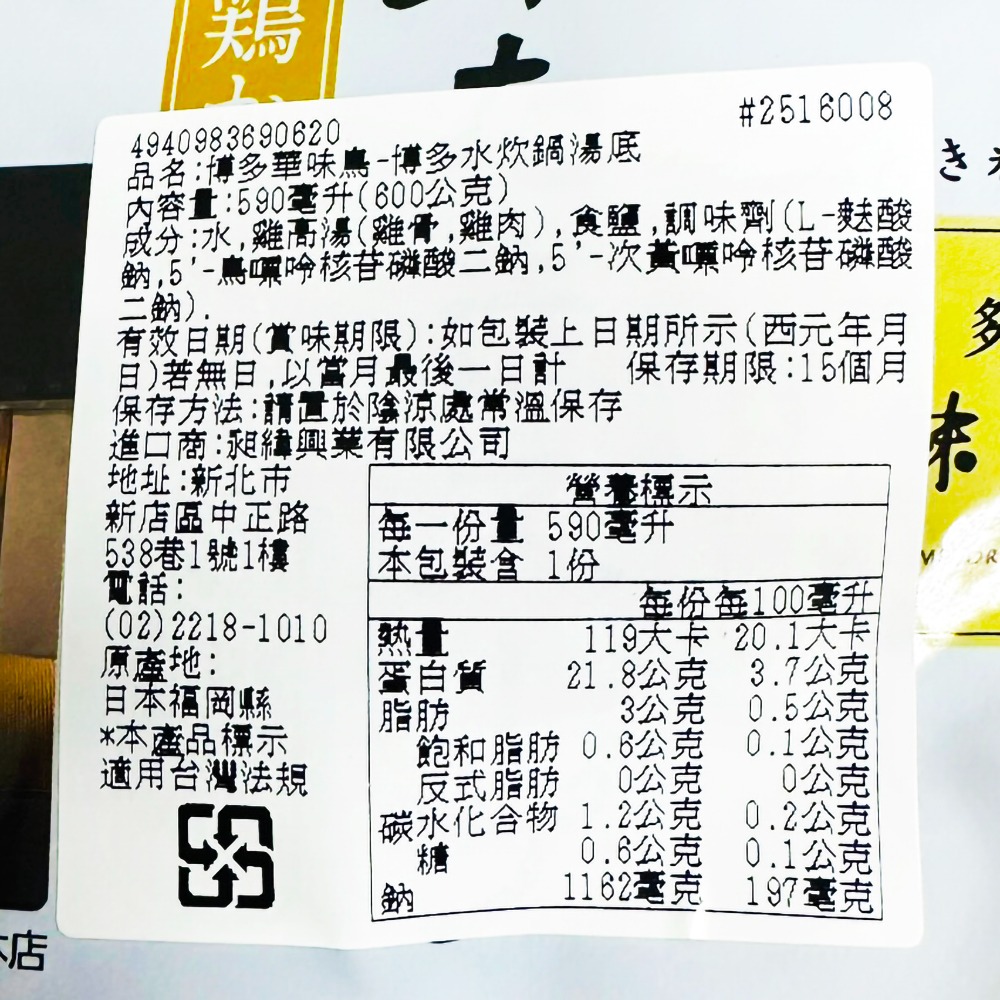 鶏
#2516008
4940983690620
品名:博多華味鳥-博多水炊鍋湯底
內容量:590毫升(600公克)
成分:水,雞高湯(雞骨,雞肉),食鹽,調味劑(L-麩酸
鈉,5'-鳥嘌呤核苷磷酸二鈉,5'-次黃嘌呤核苷磷酸
二鈉).
有效日期(賞味期限):如包裝上日期所示(西元年月
日)若無日,以當月最後一日計 保存期限:15個月
保存方法:請置於陰涼處常溫保存
進口商:昶緯興業有限公司
地址:新北市
新店區中正路
538巷1號1樓
電話:
(02)2218-1010
原產地:
日本福岡縣
*本產品標示
適用台灣法規
營養標示
每一份量 590毫升
本包裝含 1份
每份每100毫升
熱量 119大卡 20.1大卡
蛋白質 21.8公克 3.7公克
脂肪 3公克 0.5公克
飽和脂肪 0.6公克 0.1公克
反式脂肪 0公克 0公克
碳水化合物 1.2公克 0.2公克
糖 0.6公克 0.1公克
鈉 1162毫克 197毫克
き
多
味
本店